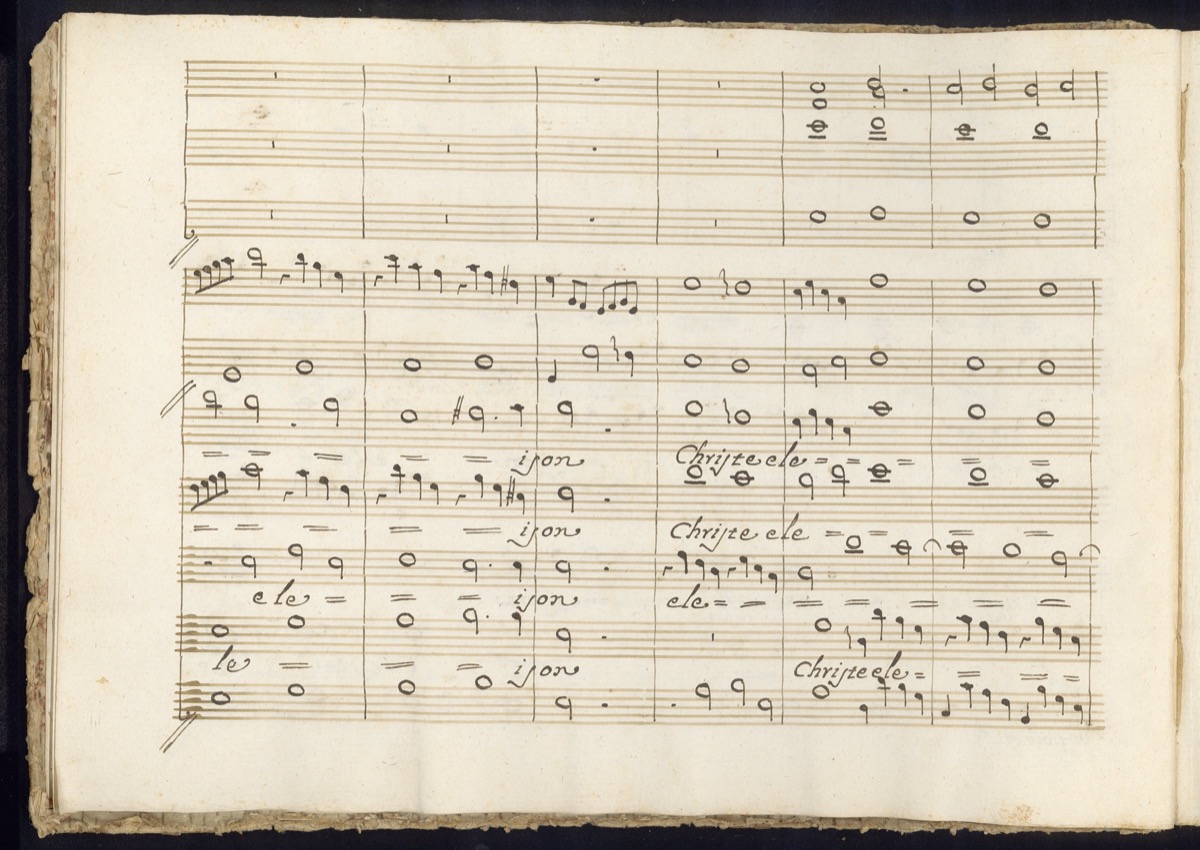 = = = = = ison Christe ele = = = = =
= = = = = ison Christe ele = = = =
ele = = = ison ele = = = = = = =
le = = = ison Christe ele = = =